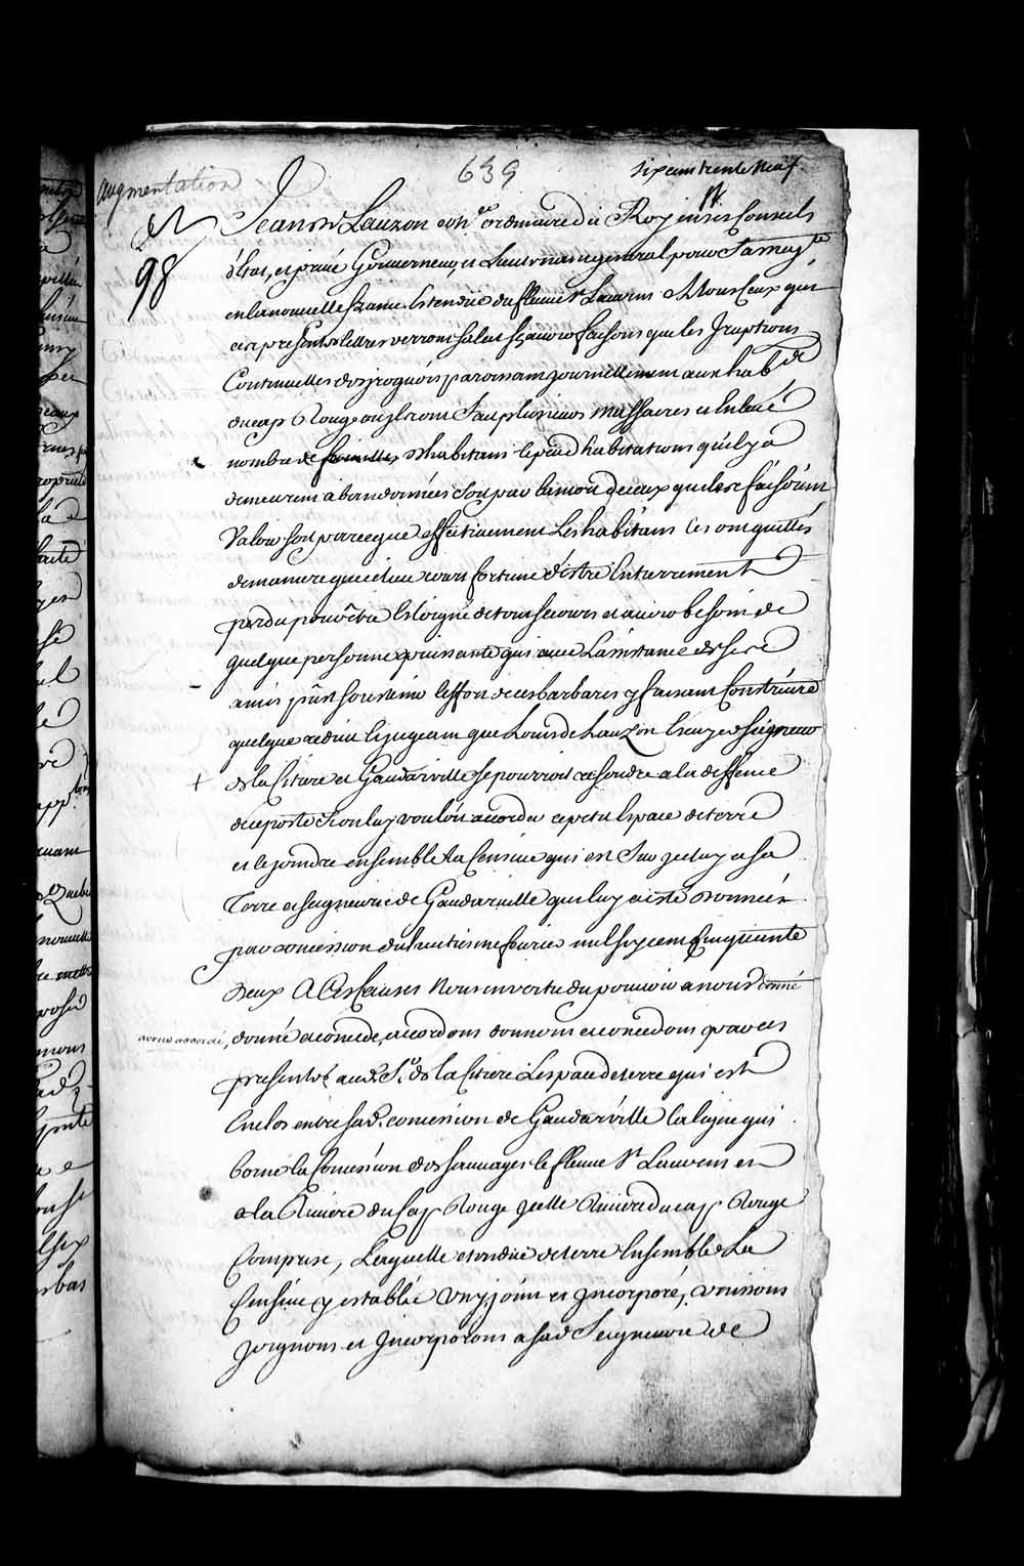 augmentation
639
six cent trente Neuf
98
Jean de Lauzon con.er ordinaire du Roy en ses Conseils
d'Etat, et privé Gouverneur, et Lieutenant general pour Sa Mag.te
en la nouvelle france Estendüe du fleuve St Laurens A tous Ceux qui
ces presentes lettres verront Salut sçavoir faisons que les Jruptions
Continuelles des jroquois paroissant journellement aux hab
du cap Rouge ou jls ont fait plusieurs massacres et Enlevé
nombre de familles d'habitans le peu d'habitations qu'il y a
demeurent abandonnées soit par la mort de ceux qui les faisoient
Valoir soit parce que effectivement les habitans les ont quittés
de maniere que ce lieu court fortune d'éstre Entierrement
perdu pour être Esloigné de tout secours et avoir besoin de
quelque personne puissante qui avec L'assistance de ses
amis pût soutenir l'effort de ces barbares y faisant Construire
quelque reduit Et jugeant que Louis de Lauzon Escuyer Seigneur
de la Citiere et Gaudarville se pourroit resoudre a la deffence
de ce poste si on luy vouloit accorder ce petit Espace de terre
et le joindre ensemble la Censive qui est Sur jceluy a sa
Terre et seigneurie de Gaudarville qui luy a esté donnée
par concession du huitiesme fevrier mil six cent Cinquante
deux A Ces Causes Nous en vertu du pouvoir a nous donné
avons accordé, donné et concedé, accordons donnons et concedons par ces
presentes aud. Sr. de la Citiere L'espace de terre qui est
Enclos entre sad. concession de Gaudarville la ligne qui
borne la Concession des sauvages le fleuve St Laurens et
la Riviere du Cap Rouge jcelle Riviere du cap Rouge
Comprise, Laquelle etendüe de terre Ensemble La
Censive y establie uny, joint et jncorporé, unissons
joignons et jncorporons a sad Seigneurie de